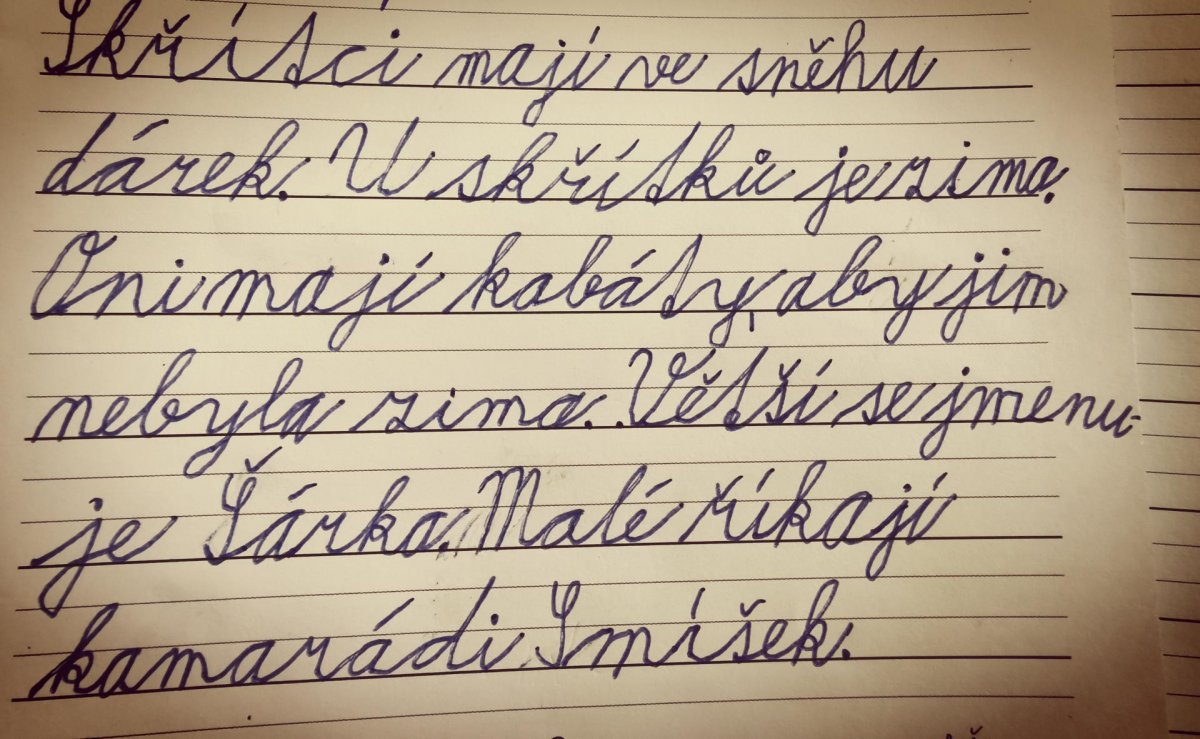 Skřítci mají ve sněhu
dárek. U skřítků je zima.
Oni mají kabáty, aby jim
nebyla zima. Větší se jmenu-
je Šárka. Malé říkají
kamarádi Smíšek.